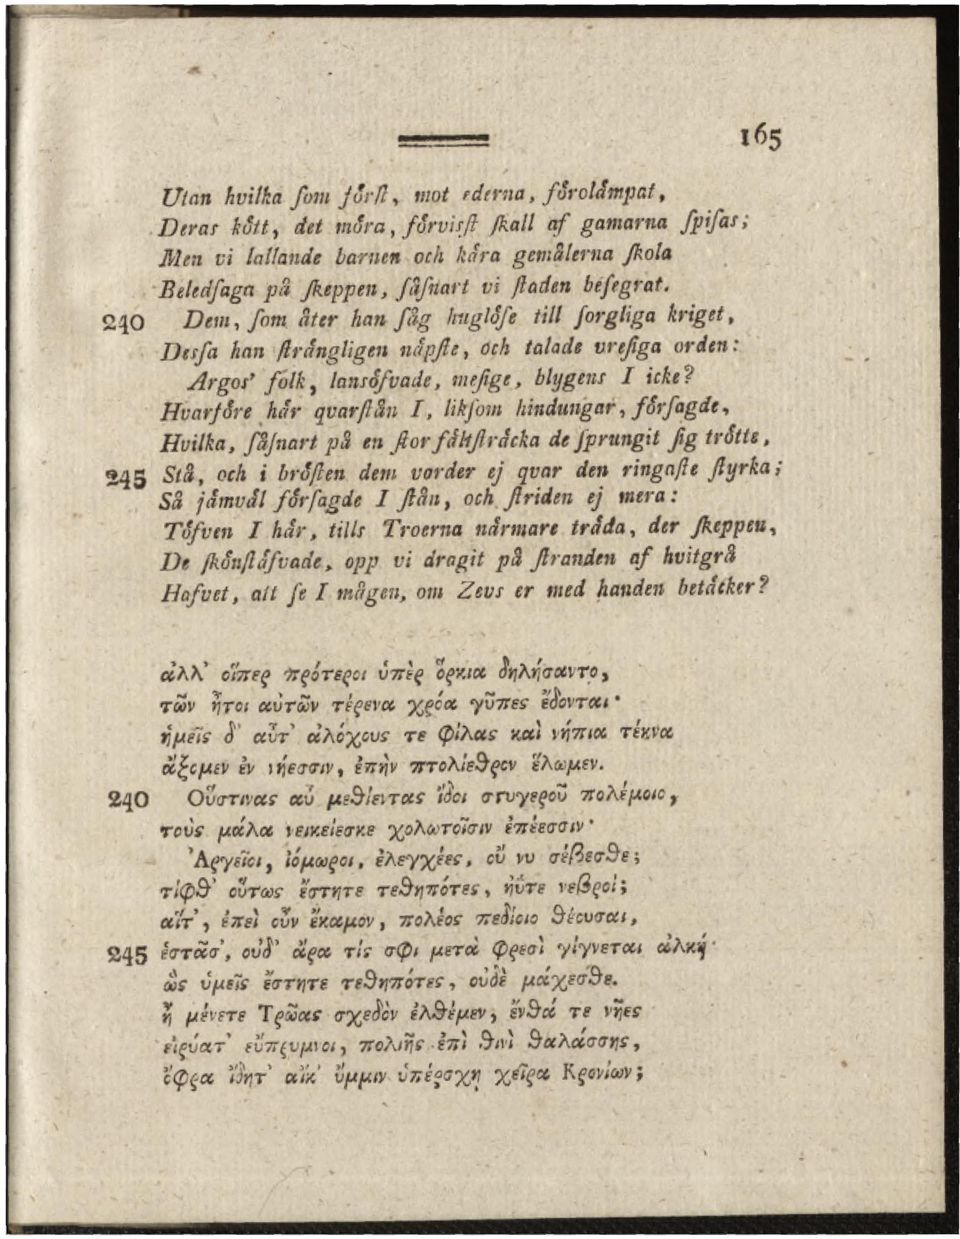 165
Utan hvilka ſom förſt, mot ederna, förolämpat,
Deras kött, det möra, förvisſt ſkall af gamarna ſpiſas;
Men vi lallande barnen och kära gemålerna ſkola
Beledſaga på ſkeppen, ſåſnart vi ſtaden beſegrat.
240 Dem, ſom åter han ſåg huglöſe till ſorgliga kriget,
Desſa han ſträngligen näpſte, och talade vreſiga orden:
Argos' folk, lansöfvade, meſige, blygens I icke?
Hvarföre här qvarſtån I, likſom hindungar, förſagde,
Hvilka, ſåſnart på en ſtor fältſträcka de ſprungit ſig trötte,
245 Stå, och i bröſten dem vorder ej qvar den ringaſte ſtyrka;
Så jämväl förſagde I ſtån, och ſtriden ej mera:
Töfven I här, tills Troerna närmare träda, der ſkeppen,
De ſkönſtäfvade, opp vi dragit på ſtranden af hvitgrå
Hafvet, att ſe I mågen, om Zevs er med handen betäcker?
ἀλλ' οἵπερ πρότεροι ὑπὲρ ὅρκια δηλήσαντο,
τῶν ἤτοι αὐτῶν τέρενα χρόα γῦπες ἔδονται·
ἡμεῖς δ' αὖτ' ἀλόχους τε φίλας καὶ νήπια τέκνα
ἄξομεν ἐν νήεσσιν, ἐπὴν πτολίεθρον ἕλωμεν.
240 Οὕστινας αὖ μεθίεντας ἴδοι στυγεροῦ πολέμοιο,
τοὺς μάλα νεικείεσκε χολωτοῖσιν ἐπέεσσιν·
Ἀργεῖοι, ἰόμωροι, ἐλεγχέες, οὔ νυ σέβεσθε;
τίφθ' οὕτως ἔστητε τεθηπότες, ἠΰτε νεβροί;
αἵτ', ἐπεὶ οὖν ἔκαμον, πολέος πεδίοιο θέουσαι,
245 ἑστᾶσ', οὐδ' ἄρα τίς σφι μετὰ φρεσὶ γίγνεται ἀλκή·
ὣς ὑμεῖς ἔστητε τεθηπότες, οὐδὲ μάχεσθε.
ἦ μένετε Τρῶας σχεδὸν ἐλθέμεν, ἔνθά τε νῆες
εἰρύατ' εὔπρυμνοι, πολιῆς ἐπὶ θινὶ θαλάσσης,
ὄφρα ἴδητ' αἴκ' ὔμμιν ὑπέρσχῃ χεῖρα Κρονίων;